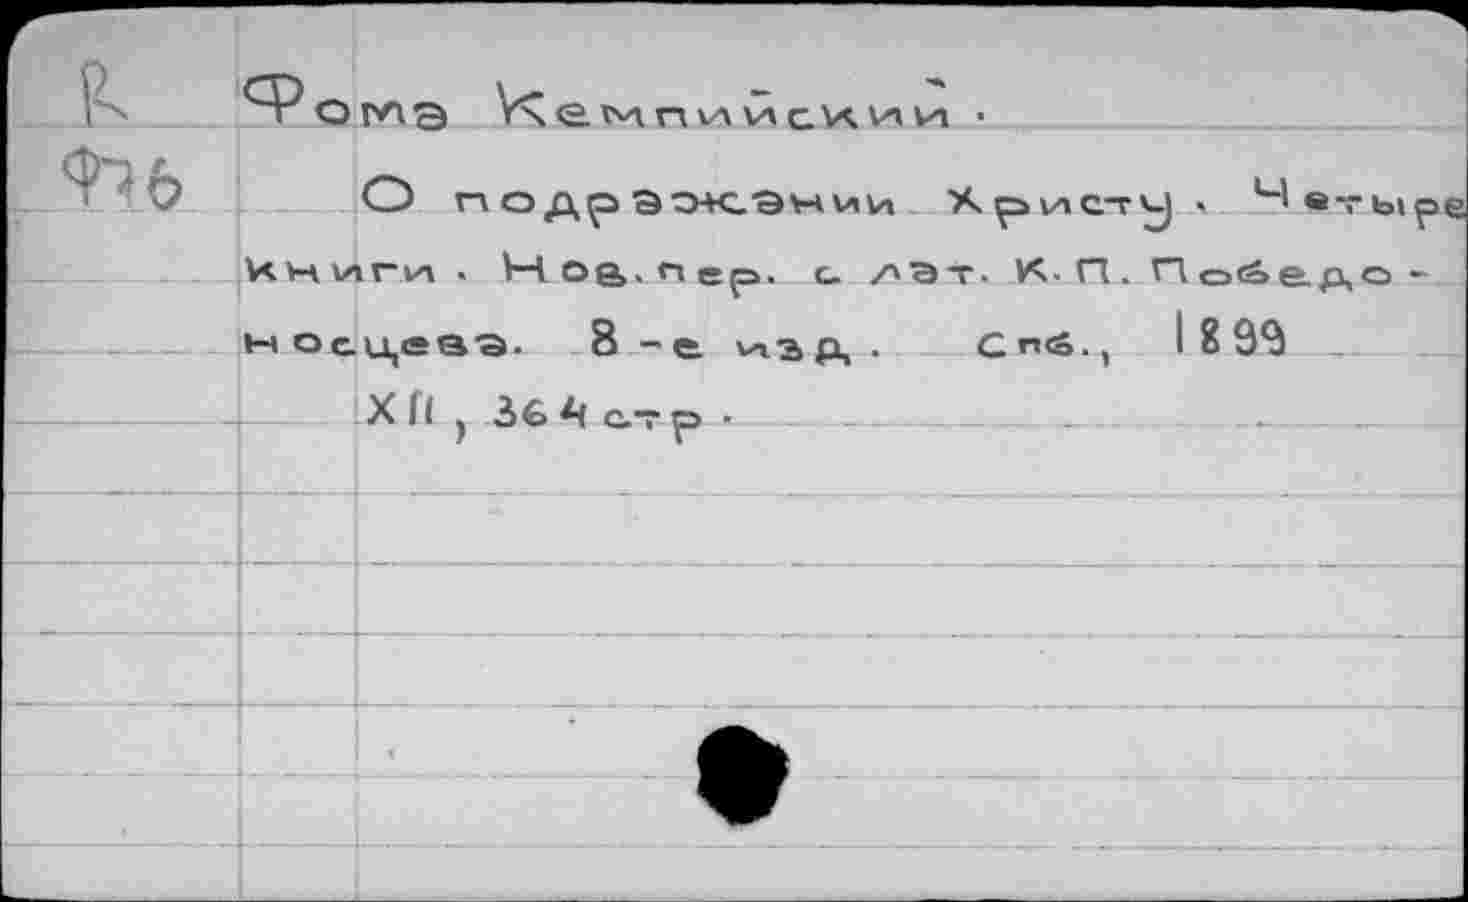 R
Ф76
Фома Кемпийский.
О подражании Христу. Четыре
книги. Нов. пер. с лат. К. П. Победо-
носцева. 8-е изд. Спб., 1899
XII, 364 стр.